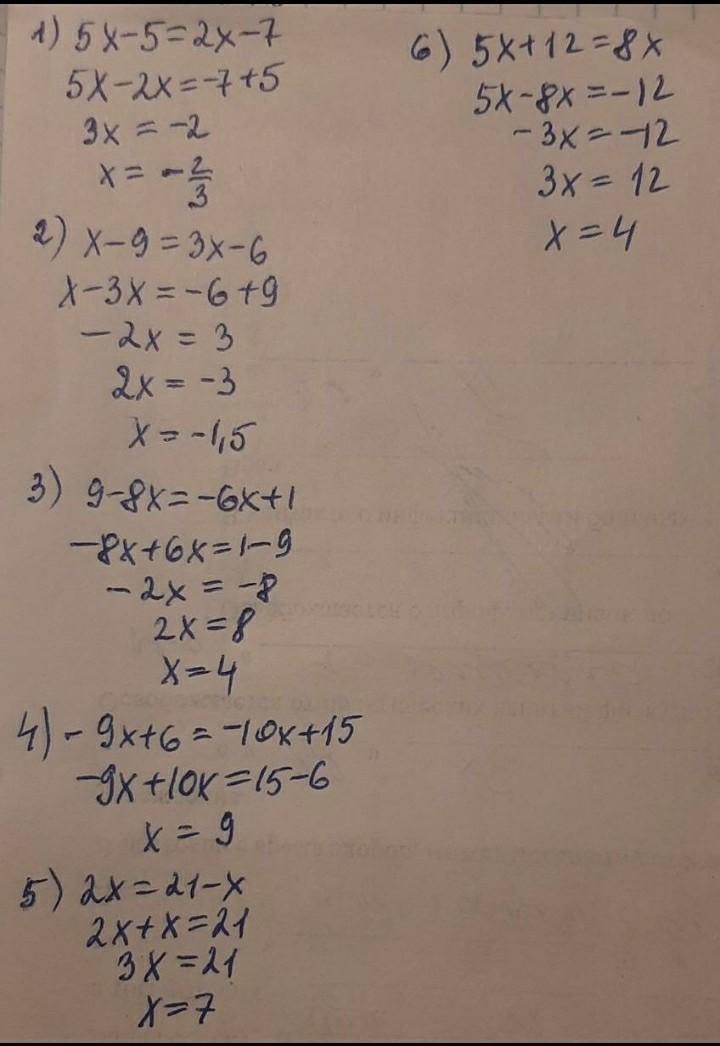 1) 5x-5=2x-7
5x-2x=-7+5
3x = -2
x = -2/3
2) x-9=3x-6
x-3x=-6+9
-2x = 3
2x = -3
x = -1,5
3) 9-8x=-6x+1
-8x+6x=1-9
-2x = -8
2x=8
x=4
4) -9x+6=-10x+15
-9x+10x=15-6
x = 9
5) 2x=21-x
2x+x=21
3x=21
x=7
6) 5x+12=8x
5x-8x=-12
-3x=-12
3x= 12
x=4